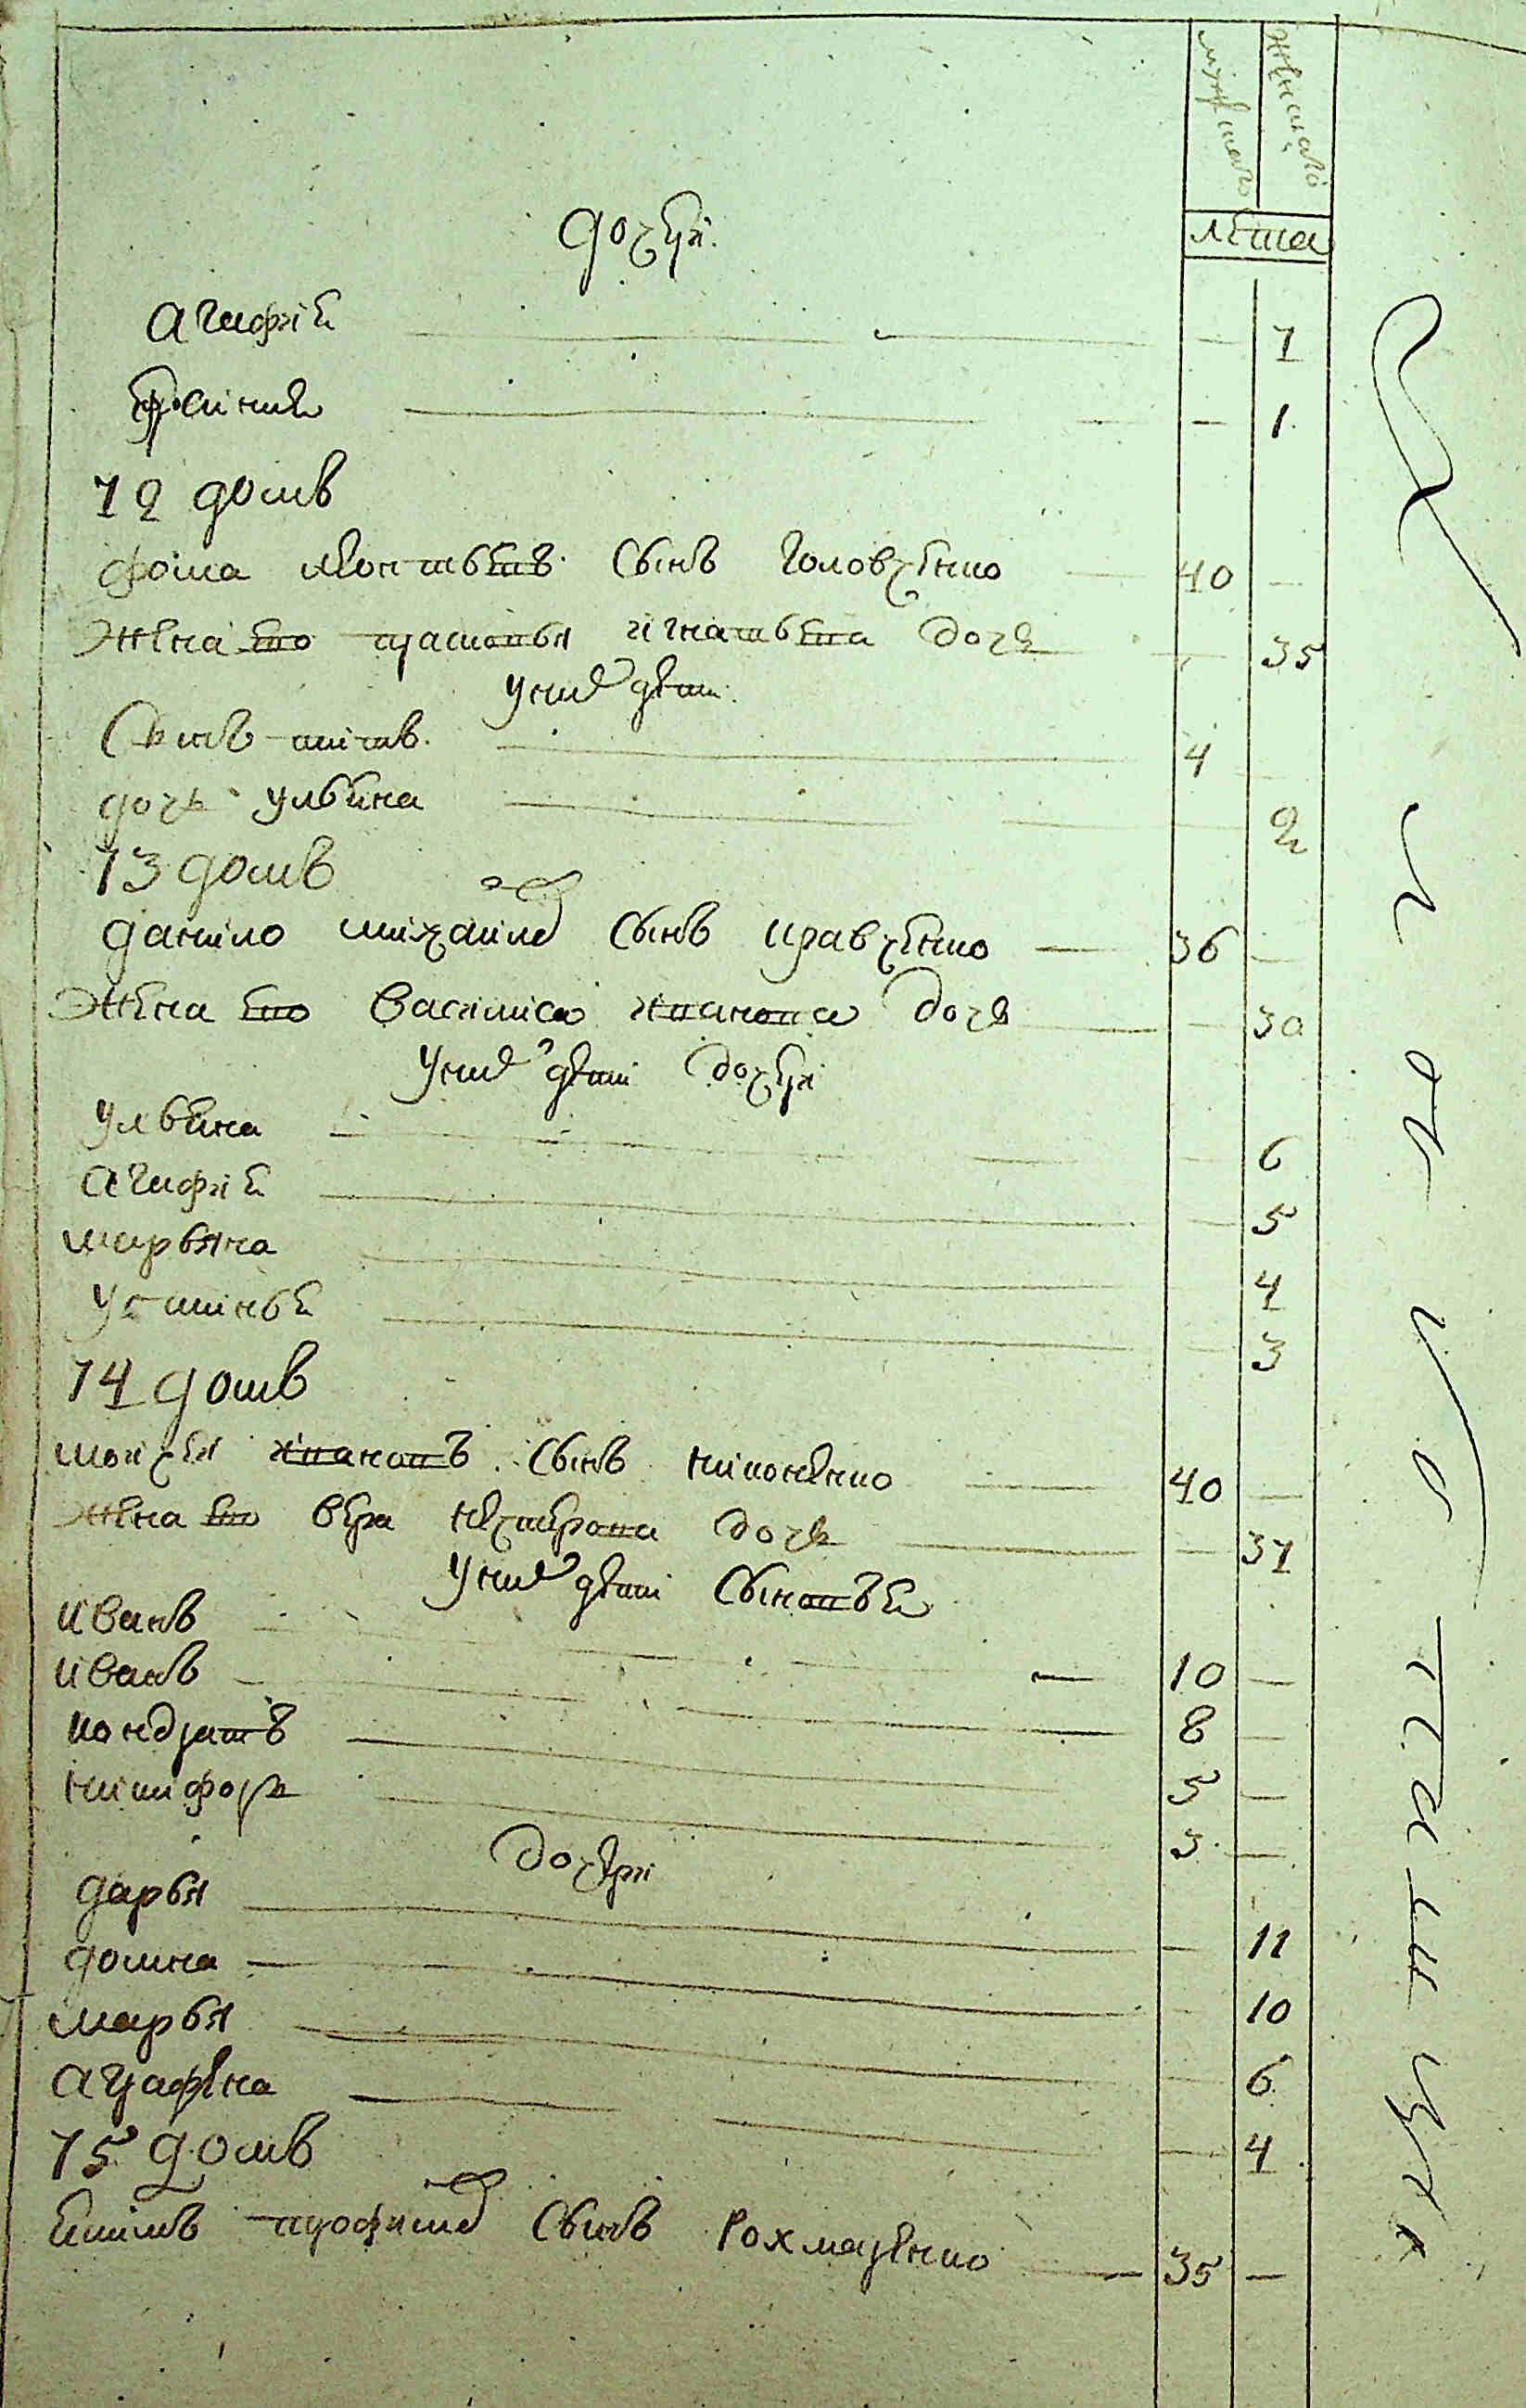 мужеска женска
лета
дочери
агафия 7
ефросиния 1
12 домъ
фома леонтьевъ сынъ головченко 40 —
жена его парасковья игнатьева дочь — 35
у них дети
сынъ титъ 4
дочь ульяна 2
13 домъ
данило михайлов сынъ кравченко — 36 —
жена его василиса иванова дочь — 30
у них дети дочери
ульяна 6
агафия 5
марьяна 4
устинья 3
14 домъ
моисей ивановъ сынъ 40 —
жена его вера дочь — 37
у них дети сыновья
иванъ — 10 —
иванъ 8 —
кондратъ 5 —
никифоръ 3 —
дочери
дарья — 11
домна — 10
марья 6
аграфена — 4
15 домъ
сынъ рохмаченко — 35 —